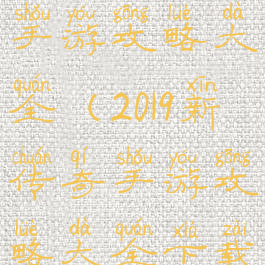 shǒu yóu gōng lüè dà
手游攻略大
quán xīn
全(2019新
chuán qí shǒu yóu gōng
传奇手游攻
lüè dà quán xià zǎi
略大全下载